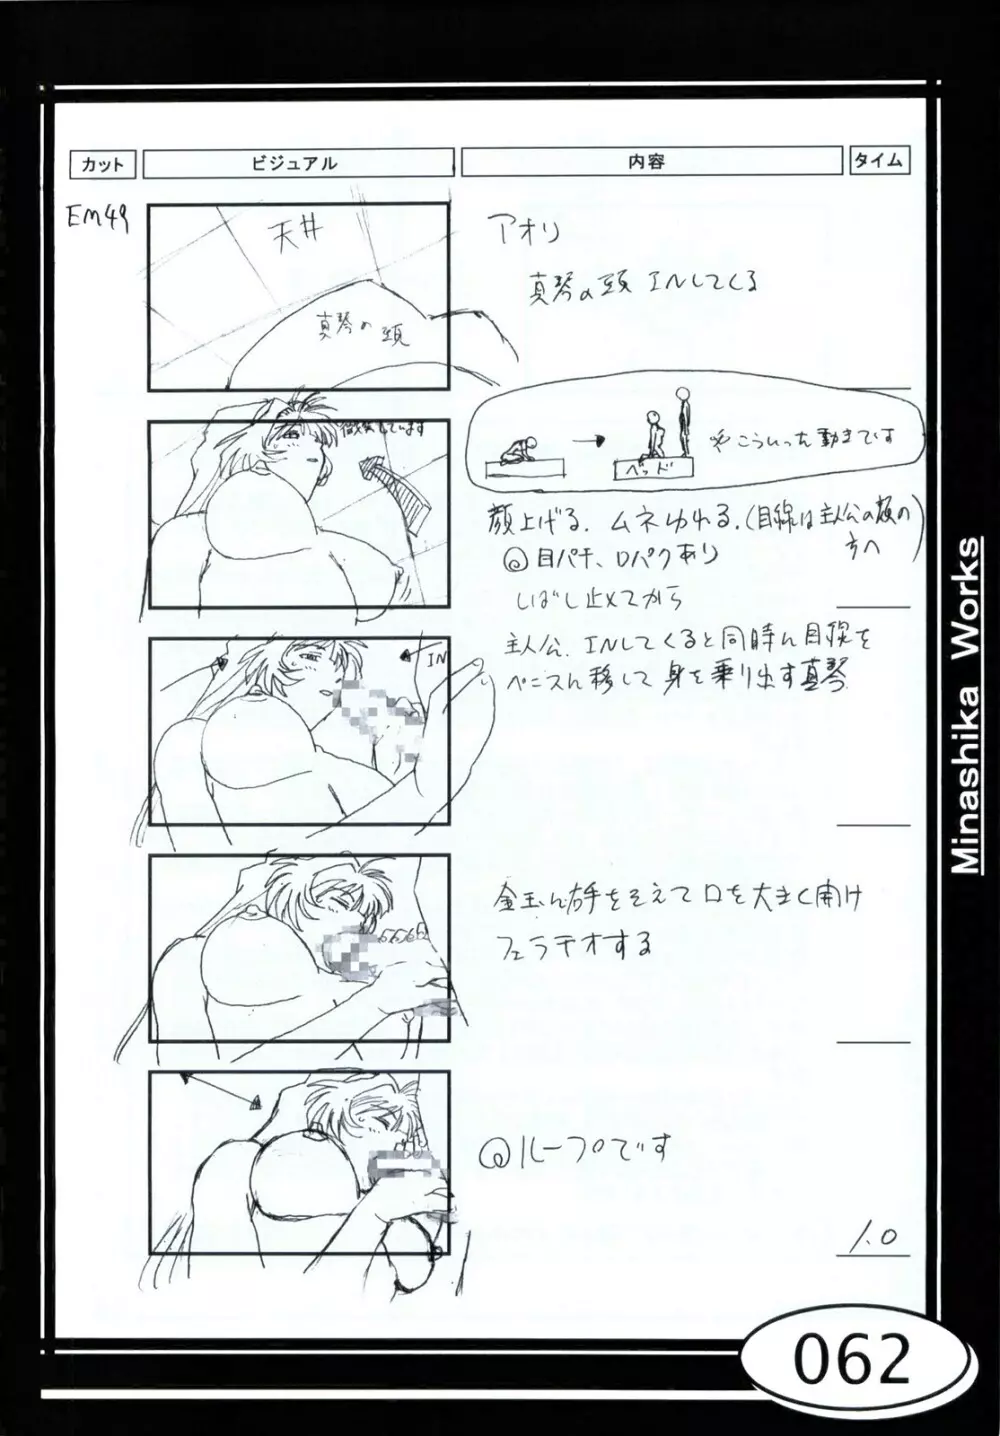 カット
ビジュアル
内容
タイム
EM49
天井
真琴の頭
アオリ
真琴の頭 INしてくる
微笑しています
ベッド
※こういった動きです
顔上げる。ムネゆれる。(目線は主人公の顔の
方へ)
◎目パチ、口パクあり
しばし止メてから
IN
主人公、INしてくると同時に目線を
ペニスに移して身を乗り出す真琴
金玉に右手をそえて口を大きく開け
フェラチオする
◎ループです
1.0
Minashika Works
062